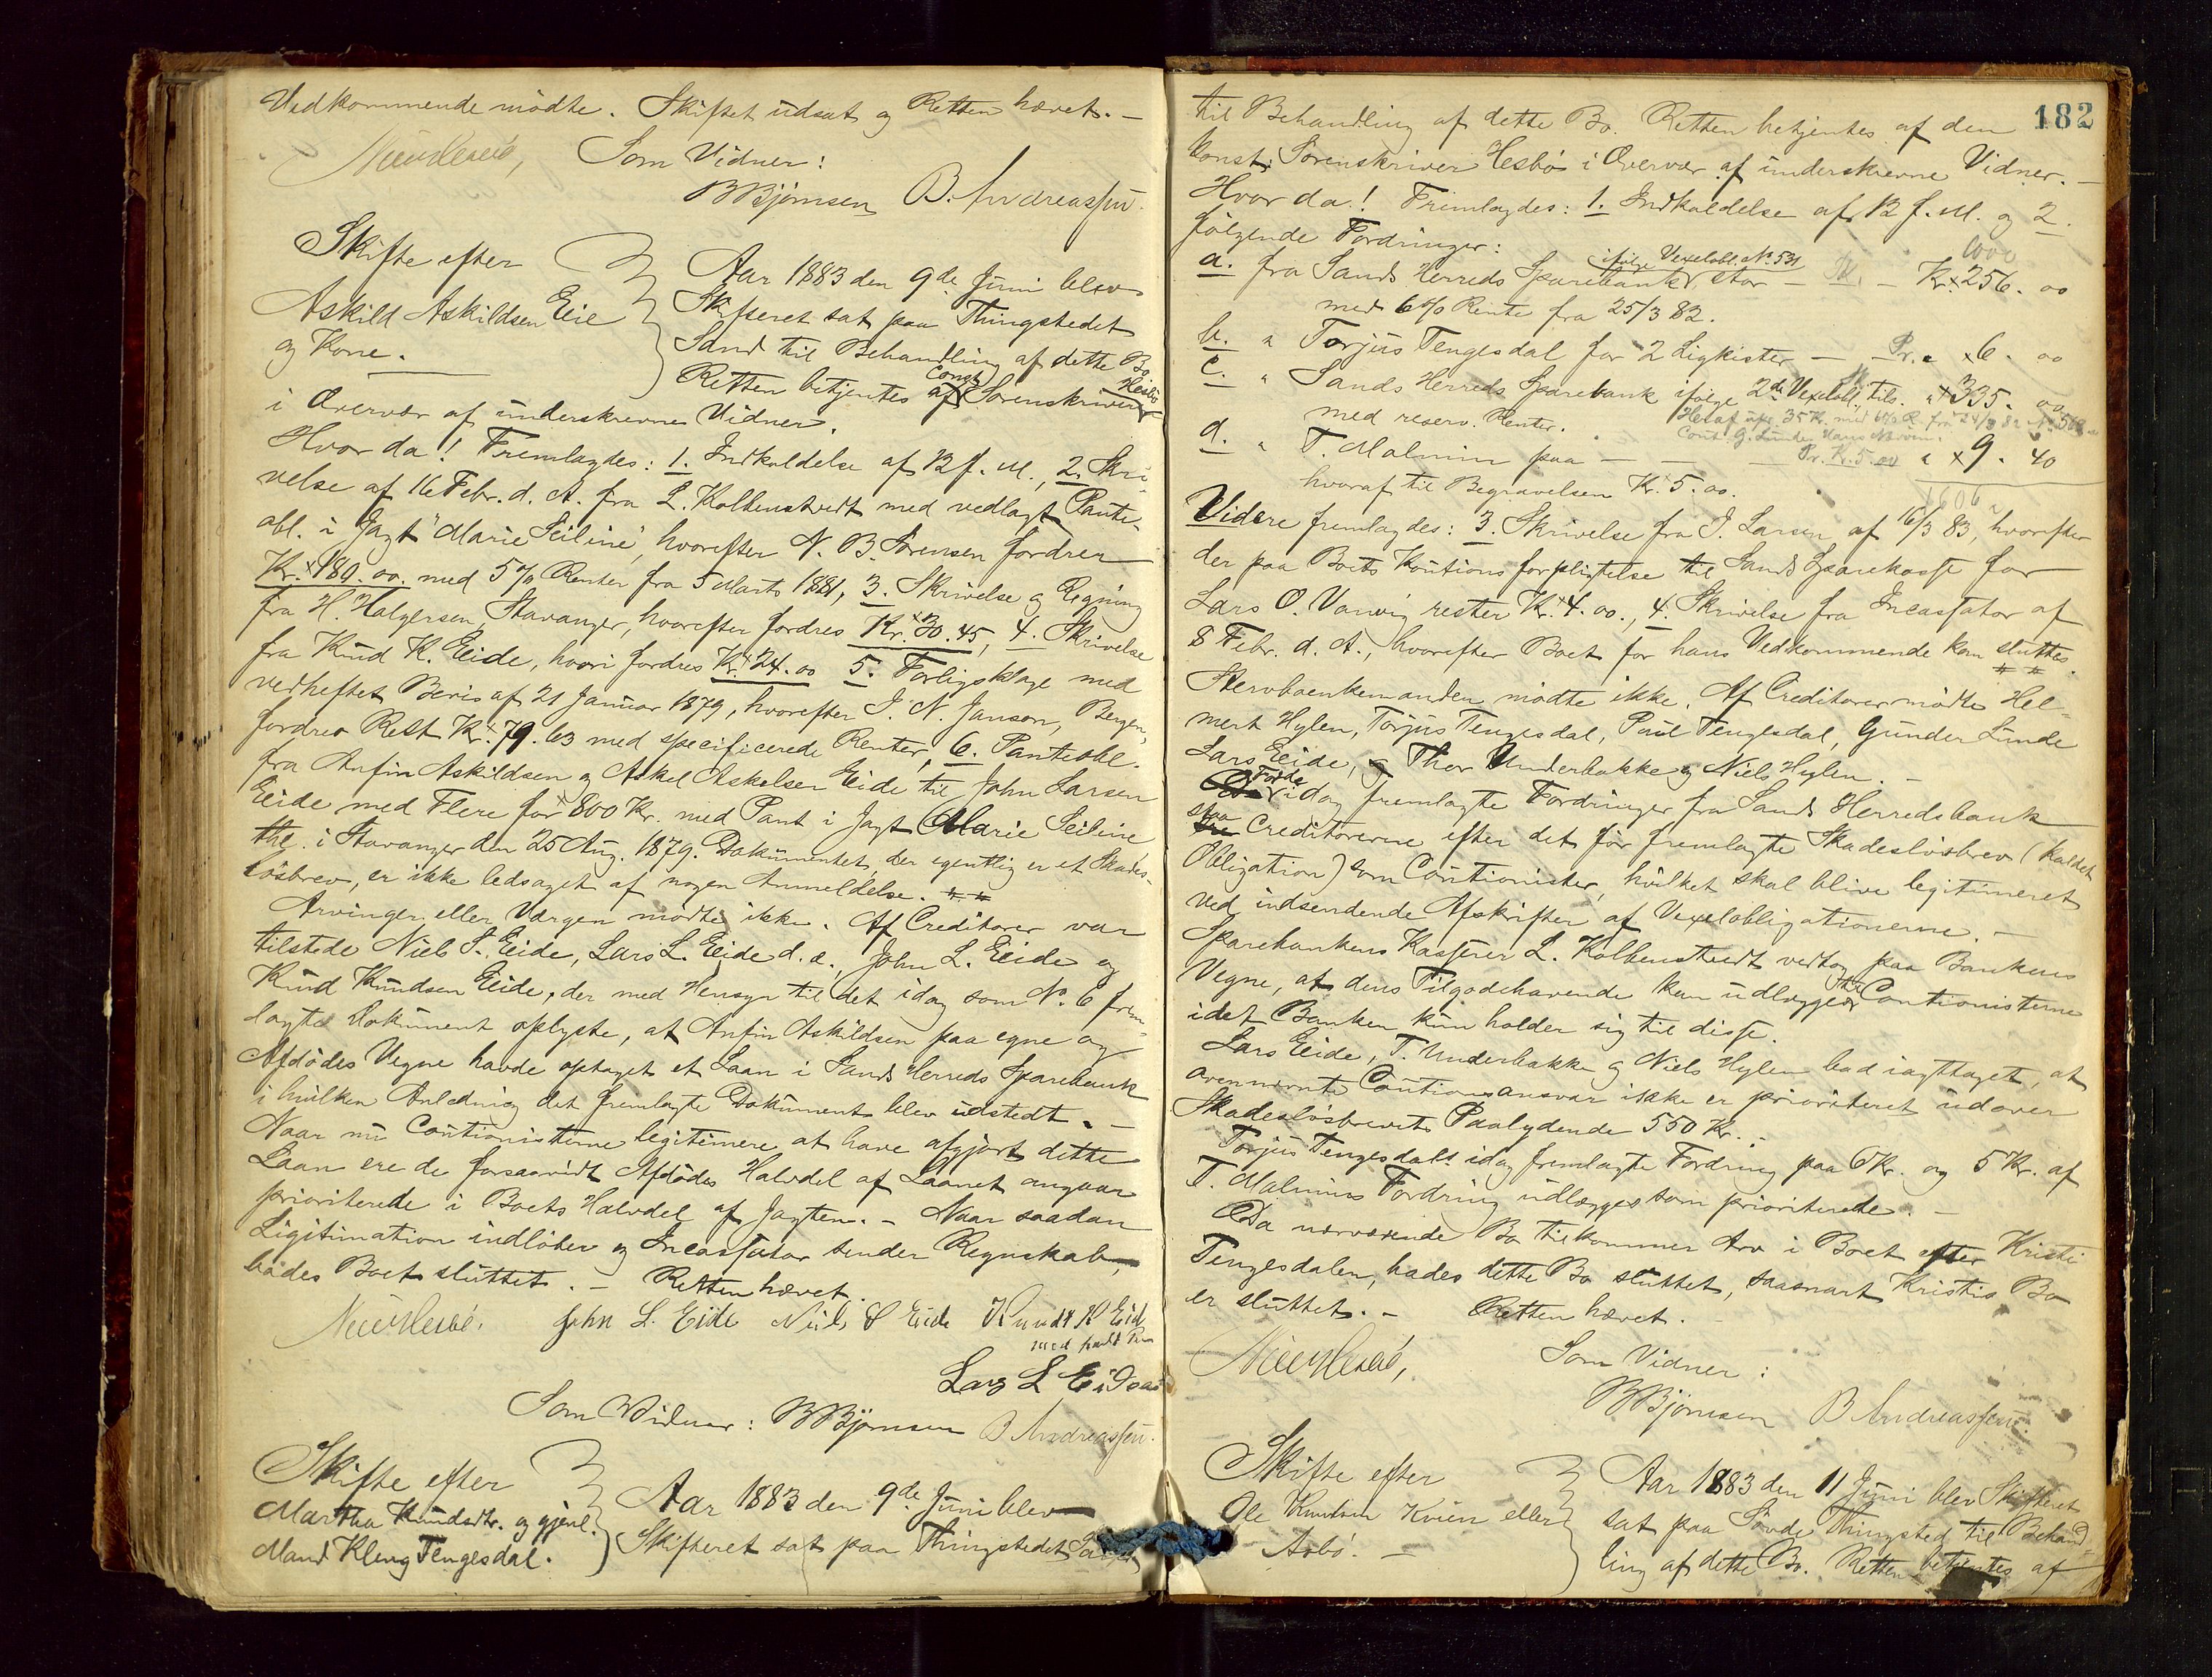 Vedkommende mödte. Skiftet udsat og Retten hævet. –
Som Vidner:
BBjörnsen B. Andreassen.
Skifte efter
Askild Askildsen Eie
og Kone.
Aar 1883 den 9de Juni blev
Skifteret sat paa Thingstedet
Sand til Behandling af dette Bo.
Retten betjentes af Const. Sorenskriver Hesbö
i Overvær af underskrevne Vidner.
Hvor da! Fremlagdes: 1. Indkaldelse af 12 f. M., 2. Skri-
velse af 16 Febr. d. A. fra L. Kolbenstvedt med vedlagt Pante-
obl. i Jagt "Marie Seiline", hvorefter N. B. Sörensen fordrer
Kr. 180.00. med 5% Renter fra 5 Marts 1881, 3. Skrivelse og Regning
fra H. Halgersen, Stavanger, hvorefter fordres Kr. 30.45, 4. Skrivelse
fra Knud K. Eide, hvori fordres Kr. 24.00 5. Forligsklage med
vedheftet Bevis af 21 Januar 1879, hvorefter J. N. Janson, Bergen,
fordrer Rest Kr. 79.63 med specificerede Renter, 6. Panteobl.
fra Anfin Askildsen og Askel Askelsen Eide til John Larsen
Eide med Flere for 800 Kr. med Pant i Jagt Marie Seiline
thl. i Stavanger den 25 Aug. 1879. Dokumentet, der egentlig er et Skades-
lösbrev, er ikke ledsaget af nogen Anmeldelse.
Arvinger eller Værgen mödte ikke. Af Creditorer var
tilstede Niels S. Eide, Lars L. Eide d. æ., John L. Eide og
Knud Knudsen Eide, der med Hensyn til det idag som No. 6 frem-
lagte Dokument oplyste, at Anfin Askildsen paa egne og
Afdödes Vegne havde optaget et Laan i Sands Herreds Sparebank
i hvilken Anledning det fremlagte Dokument blev udstedt. –
Naar nu Cautionisterne legitimere at have afgjort dette
Laan ere de forsaavidt Afdödes Halvdel af Laanet angaar
prioriterede i Boets Halvdel af Jagten. – Naar saadan
Legitimation indlöber og Incassator sender Regnskab,
hades Boet sluttet. – Retten hævet.
John L. Eide Niels S Eide Knudt K Eide
med paaholdt Pen
Lars L Eide
Som Vidner: BBjörnsen B Andreassen.
Skifte efter
Martha Knudsdtr. og gjenl.
Mand Kleng Tengesdal.
Aar 1883 den 9de Juni blev
Skifteret sat paa Thingstedet Sand
182
til Behandling af dette Bo. Retten betjentes af den
konst. Sorenskriver Hesbö i Overvær af underskrevne Vidner. –
Hvor da! Fremlagdes: 1. Indkaldelse af 12 f. M. og 2.
fölgende Fordringer:
a. fra Sands Herreds Sparebank ifølge Vexelobl. No. 531 stor – Kr. 256.00
med 6% Rente fra 25/3 82.
b. " Torjus Tengesdal for 2 Ligkister – Pr. " 6.00
c. " Sands Herreds Sparebank ifölge 2de Vexelobl. tils. " 1335.00
med reserv. Renter.
d. " T. Malmin paa – – – Pr. Kr. 5.00 " 9.40
hvoraf til Begravelsen Kr. 5.00.
Videre fremlagdes: 3. Skrivelse fra J. Larsen af 16/3 83, hvorefter
der paa Boets Kautionsforpligtelse til Sands Sparekasse for
Lars O. Vanvig rester Kr. 4.00., 4. Skrivelse fra Incassator af
8 Febr. d. A., hvorefter Boet for hans Vedkommende kan sluttes.
Stervboenkemanden mödte ikke. Af Creditorer mödte Hel-
mert Hylen, Torjus Tengesdal, Paul Tengesdal, Gunder Lunde
Lars Eide, Thor Underbakke og Niels Hylen. –
For de idag fremlagte Fordringer fra Sands Herredsbank
staa Creditorerne efter det för fremlagte Skadeslösbrev (kaldet
Obligation) som Cautionister, hvilket skal blive legitimeret
ved indsendende Afskrifter af Vexelobligationerne. –
Sparebankens Kasserer L. Kolbenstvedt vedtog paa Bankens
Vegne, at dens Tilgodehavende kan udlægges til Cautionisterne
idet Banken kun holder sig til disse.
Lars Eide, T. Underbakke og Niels Hylen bad iagttaget, at
ovennævnte Cautionsansvar ikke er prioriteret udover
Skadeslösbrevets Paalydende 550 Kr. –
Torjus Tengesdals idag fremlagte Fordring paa 6 Kr. og 5 Kr. af
T. Malmins Fordring udlægges som prioriterede. –
Da nærværende Bo tilkommer Arv i Boet efter Kristi
Tengesdalen, hades dette Bo sluttet, saasnart Kristis Bo
er sluttet. – Retten hævet.
Som Vidner:
BBjörnsen B Andreassen.
Skifte efter
Ole Knutsen Kvien eller
Aabö. –
Aar 1883 den 11 Juni blev Skifteret
sat paa Sövde Thingsted til Behand-
ling af dette Bo. Retten betjentes af